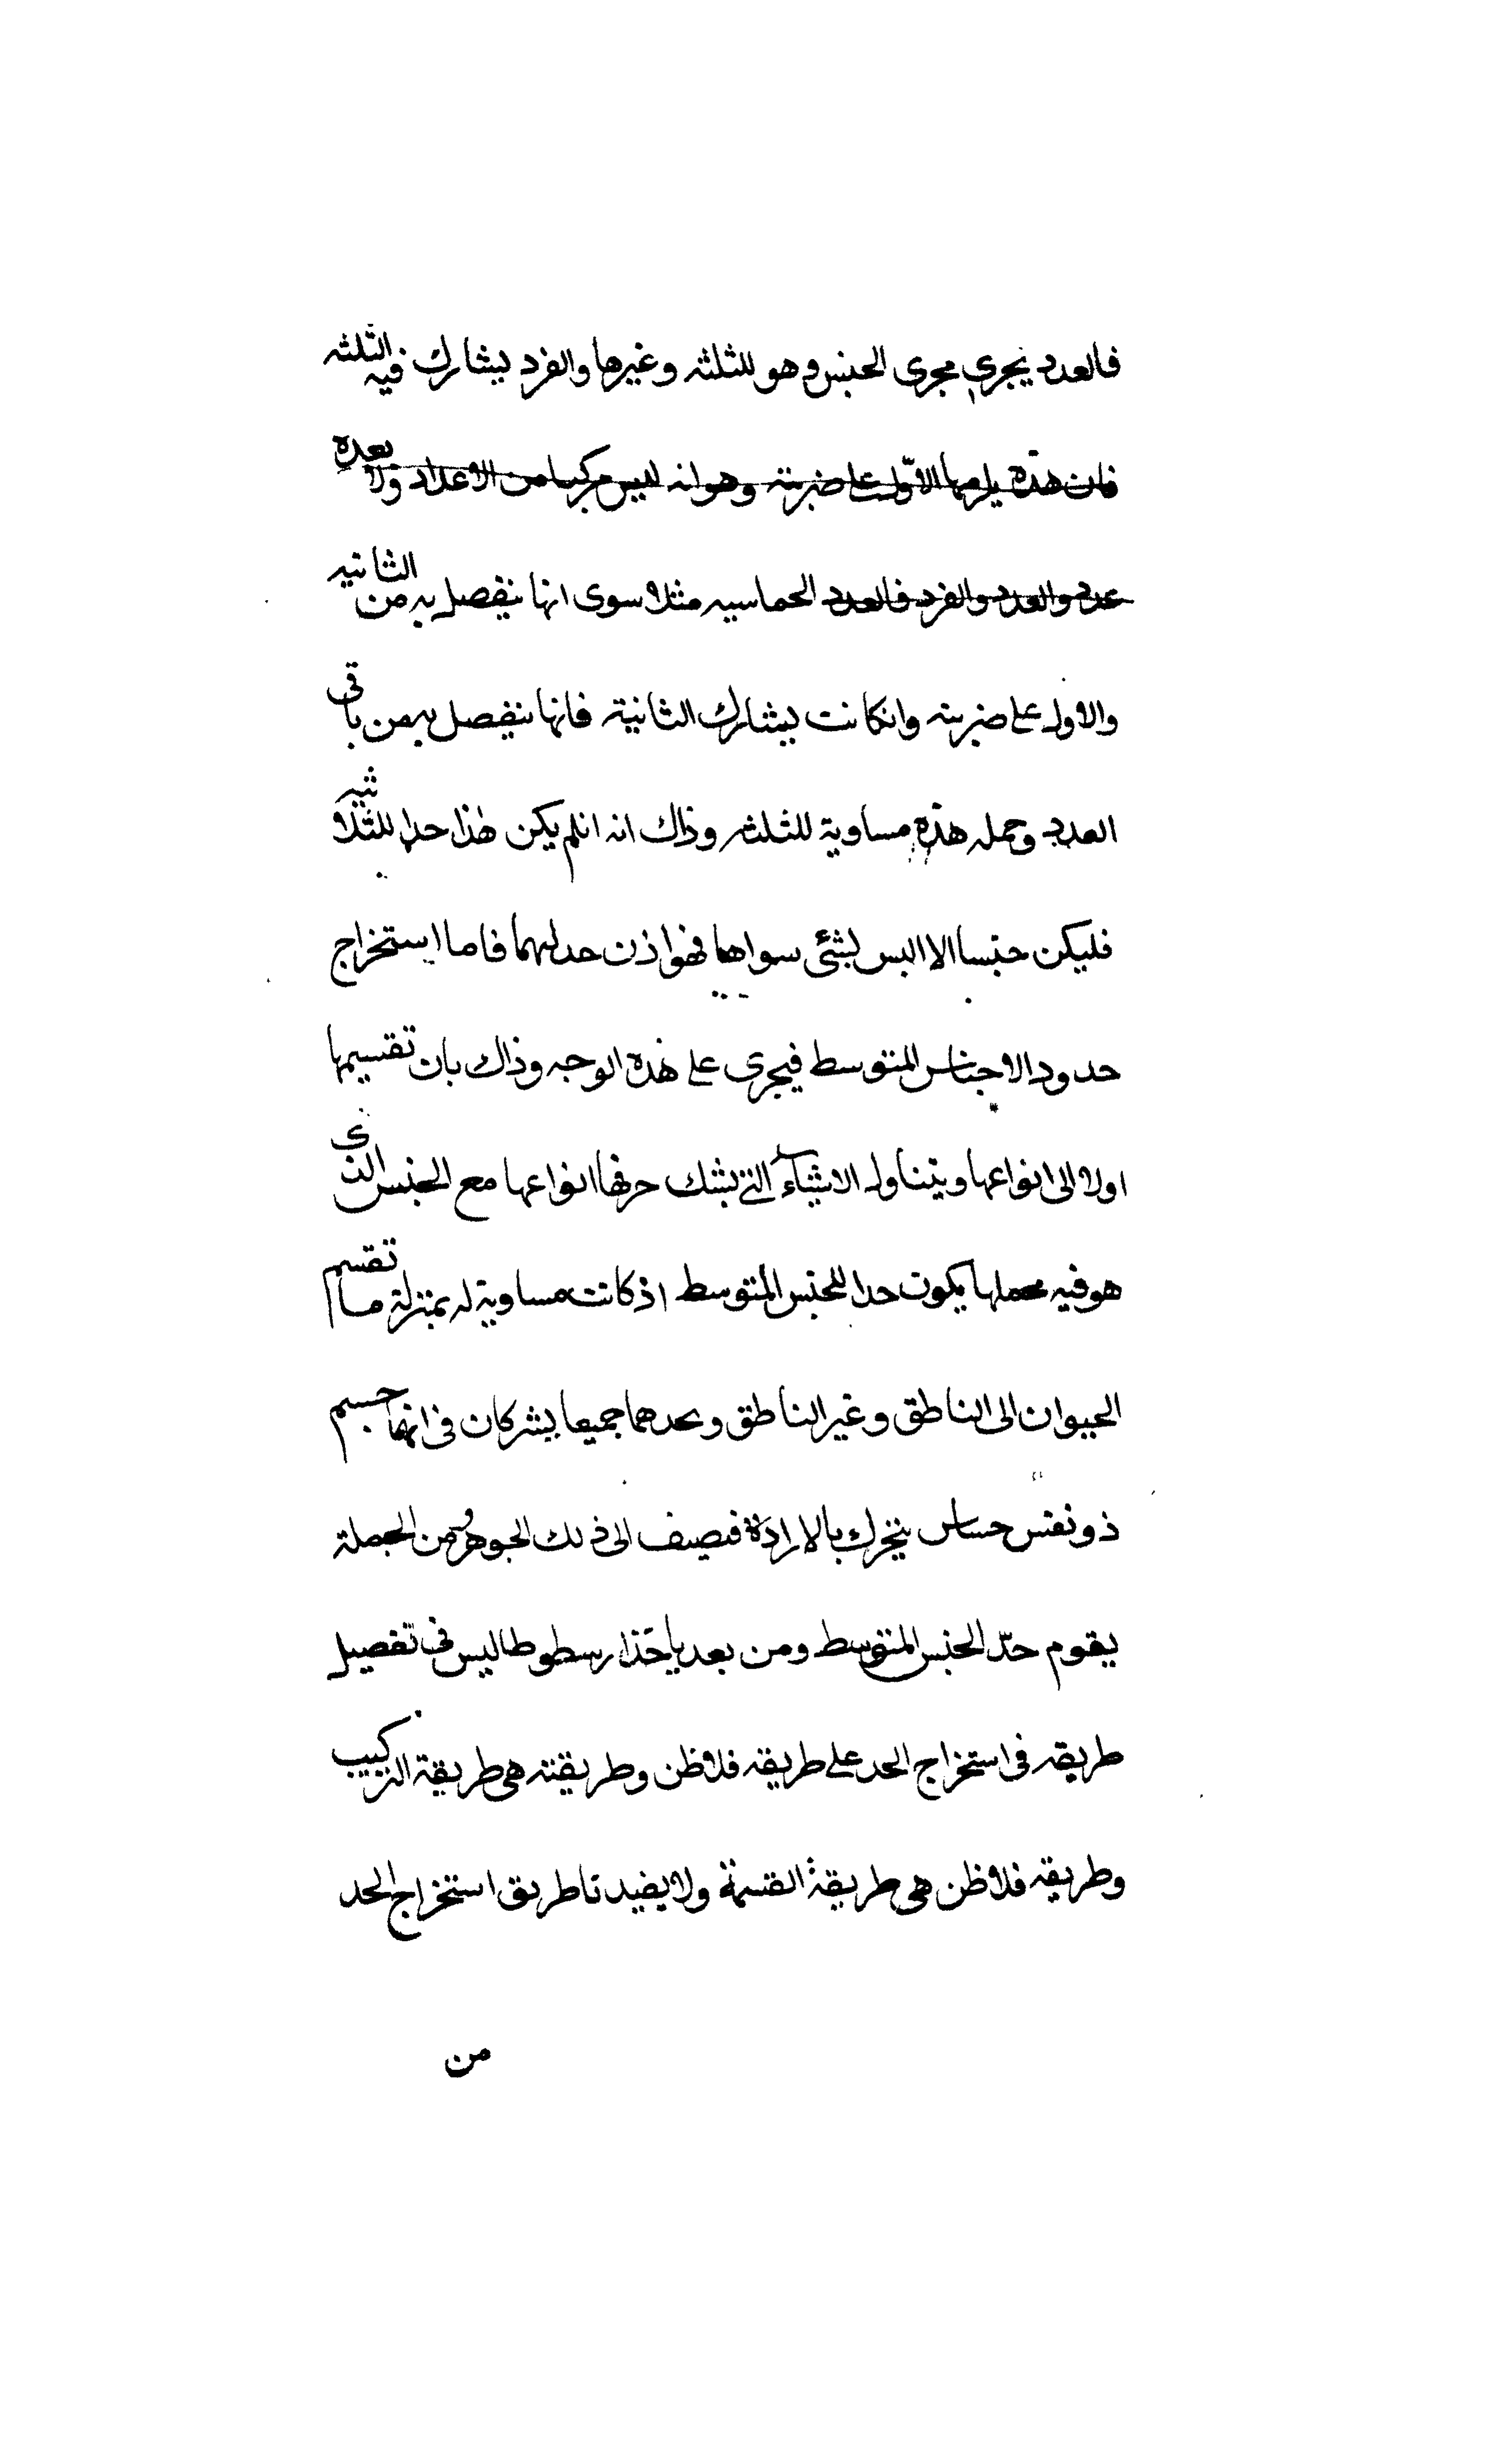 فالعدد يجري مجرى الجنس وهو للثلثه وغيرها والفرد يشارك فيه الثلثه
فان هذه يلزمها الاوّل على ضربته وهو انه ليس مركبا من الاعداد ولا بعده
عدد والعدد والفرد فالعدد الخماسيه مثلا سوى انها ينفصل به من الثانيه
والاول على ضربته وانكانت يشارك الثانية فانها ينفصل به من باقى
العدد وجمله هذه مساوية للثلثه وذاك انه انلم يكن هذا حدا للثلاثيه
فليكن جنسا الا اليس لشئ سواها فهو اذن حد لهما فاما استخراج
حدود الاجناس المتوسط فيجرى على هذه الوجه وذاك بان تقسيمها
اولا الى انواعها ويتناول الاشياء التى يشك انواعها مع الجنس الذى
هو فيه محملها يكون حدا للجنس المتوسط اذ كانت مساوية له بمنزلة ما تقسم
الحيوان الى الناطق وغير الناطق وحدهما جميعا يشركان فى انهما جسم
ذو نفس حساس يتحرك بالارادة فيصف الى ذلك الجوهر ومن الجملة
يقوم حدّ الجنس المتوسط ومن بعد ياخذ ارسطوطاليس فى تفصيل
طريقه فى استخراج الحد على طريقه فلاظن وطريقته هى طريقة التركيب
وطريقه فلاظن هى طريقة القسمة ولا يفيدنا طريق استخراج الحد
من